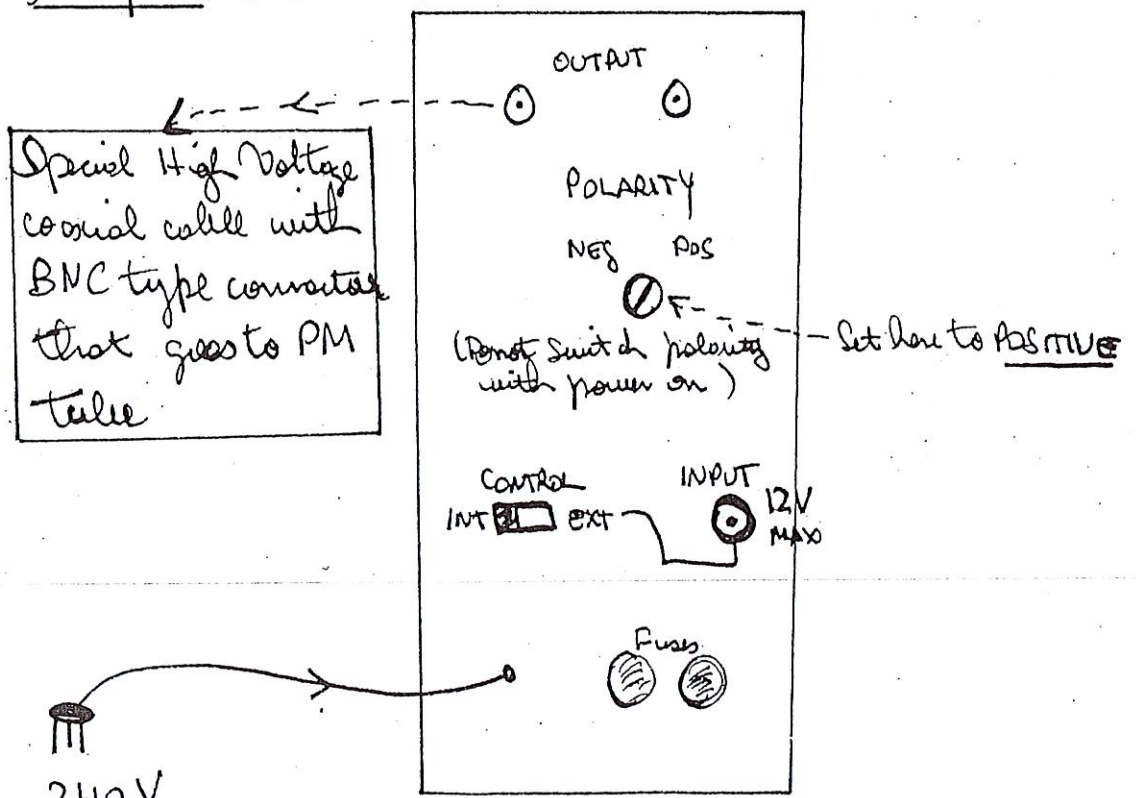 OUTPUT
Special High Voltage
coaxial cable with
BNC type connector
that goes to PM
tube
POLARITY
NEG POS
(Do not switch polarity
with power on)
Set here to POSITIVE
CONTROL
INT EXT
INPUT
12V
MAX
Fuses
240V